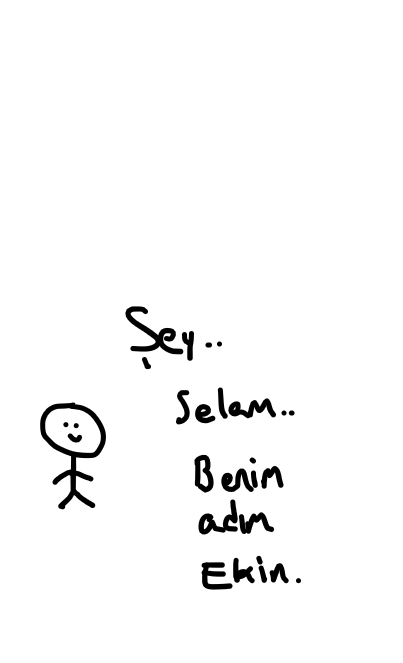 Şey..
Selam..
Benim
adım
Ekin.